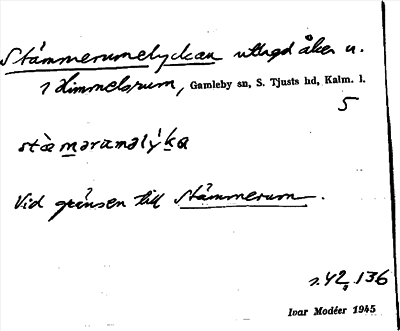 Stämmerumelyckan utlagd åker u.
1 Himmelsrum, Gamleby sn, S. Tjusts hd, Kalm. l.
5
stæ̀marumalýka
Vid gränsen till Stämmerum.
s. 42, 136
Ivar Modéer 1945